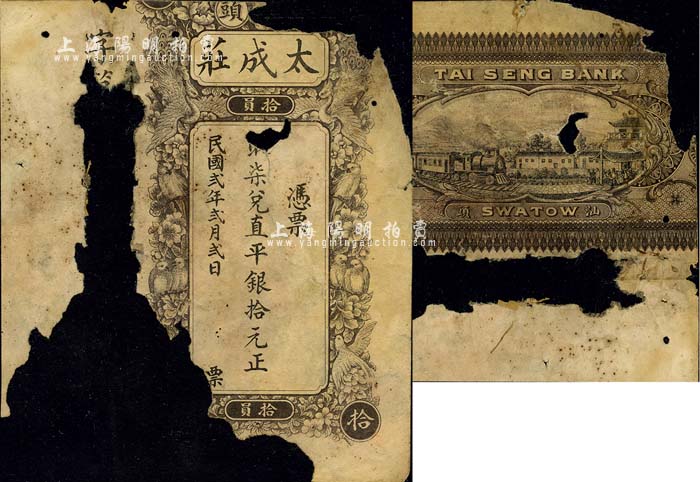 頭
太成莊
拾員
憑票
柒兌直平銀拾元正
民國弍年弍月弍日
字
票
拾員
拾
上海陽明拍賣
www.yangmingauction.com
TAI SENG BANK
汕 SWATOW 頭
上海陽明拍賣
www.yangmingauction.com
上海陽明拍賣
www.yangmingauction.com